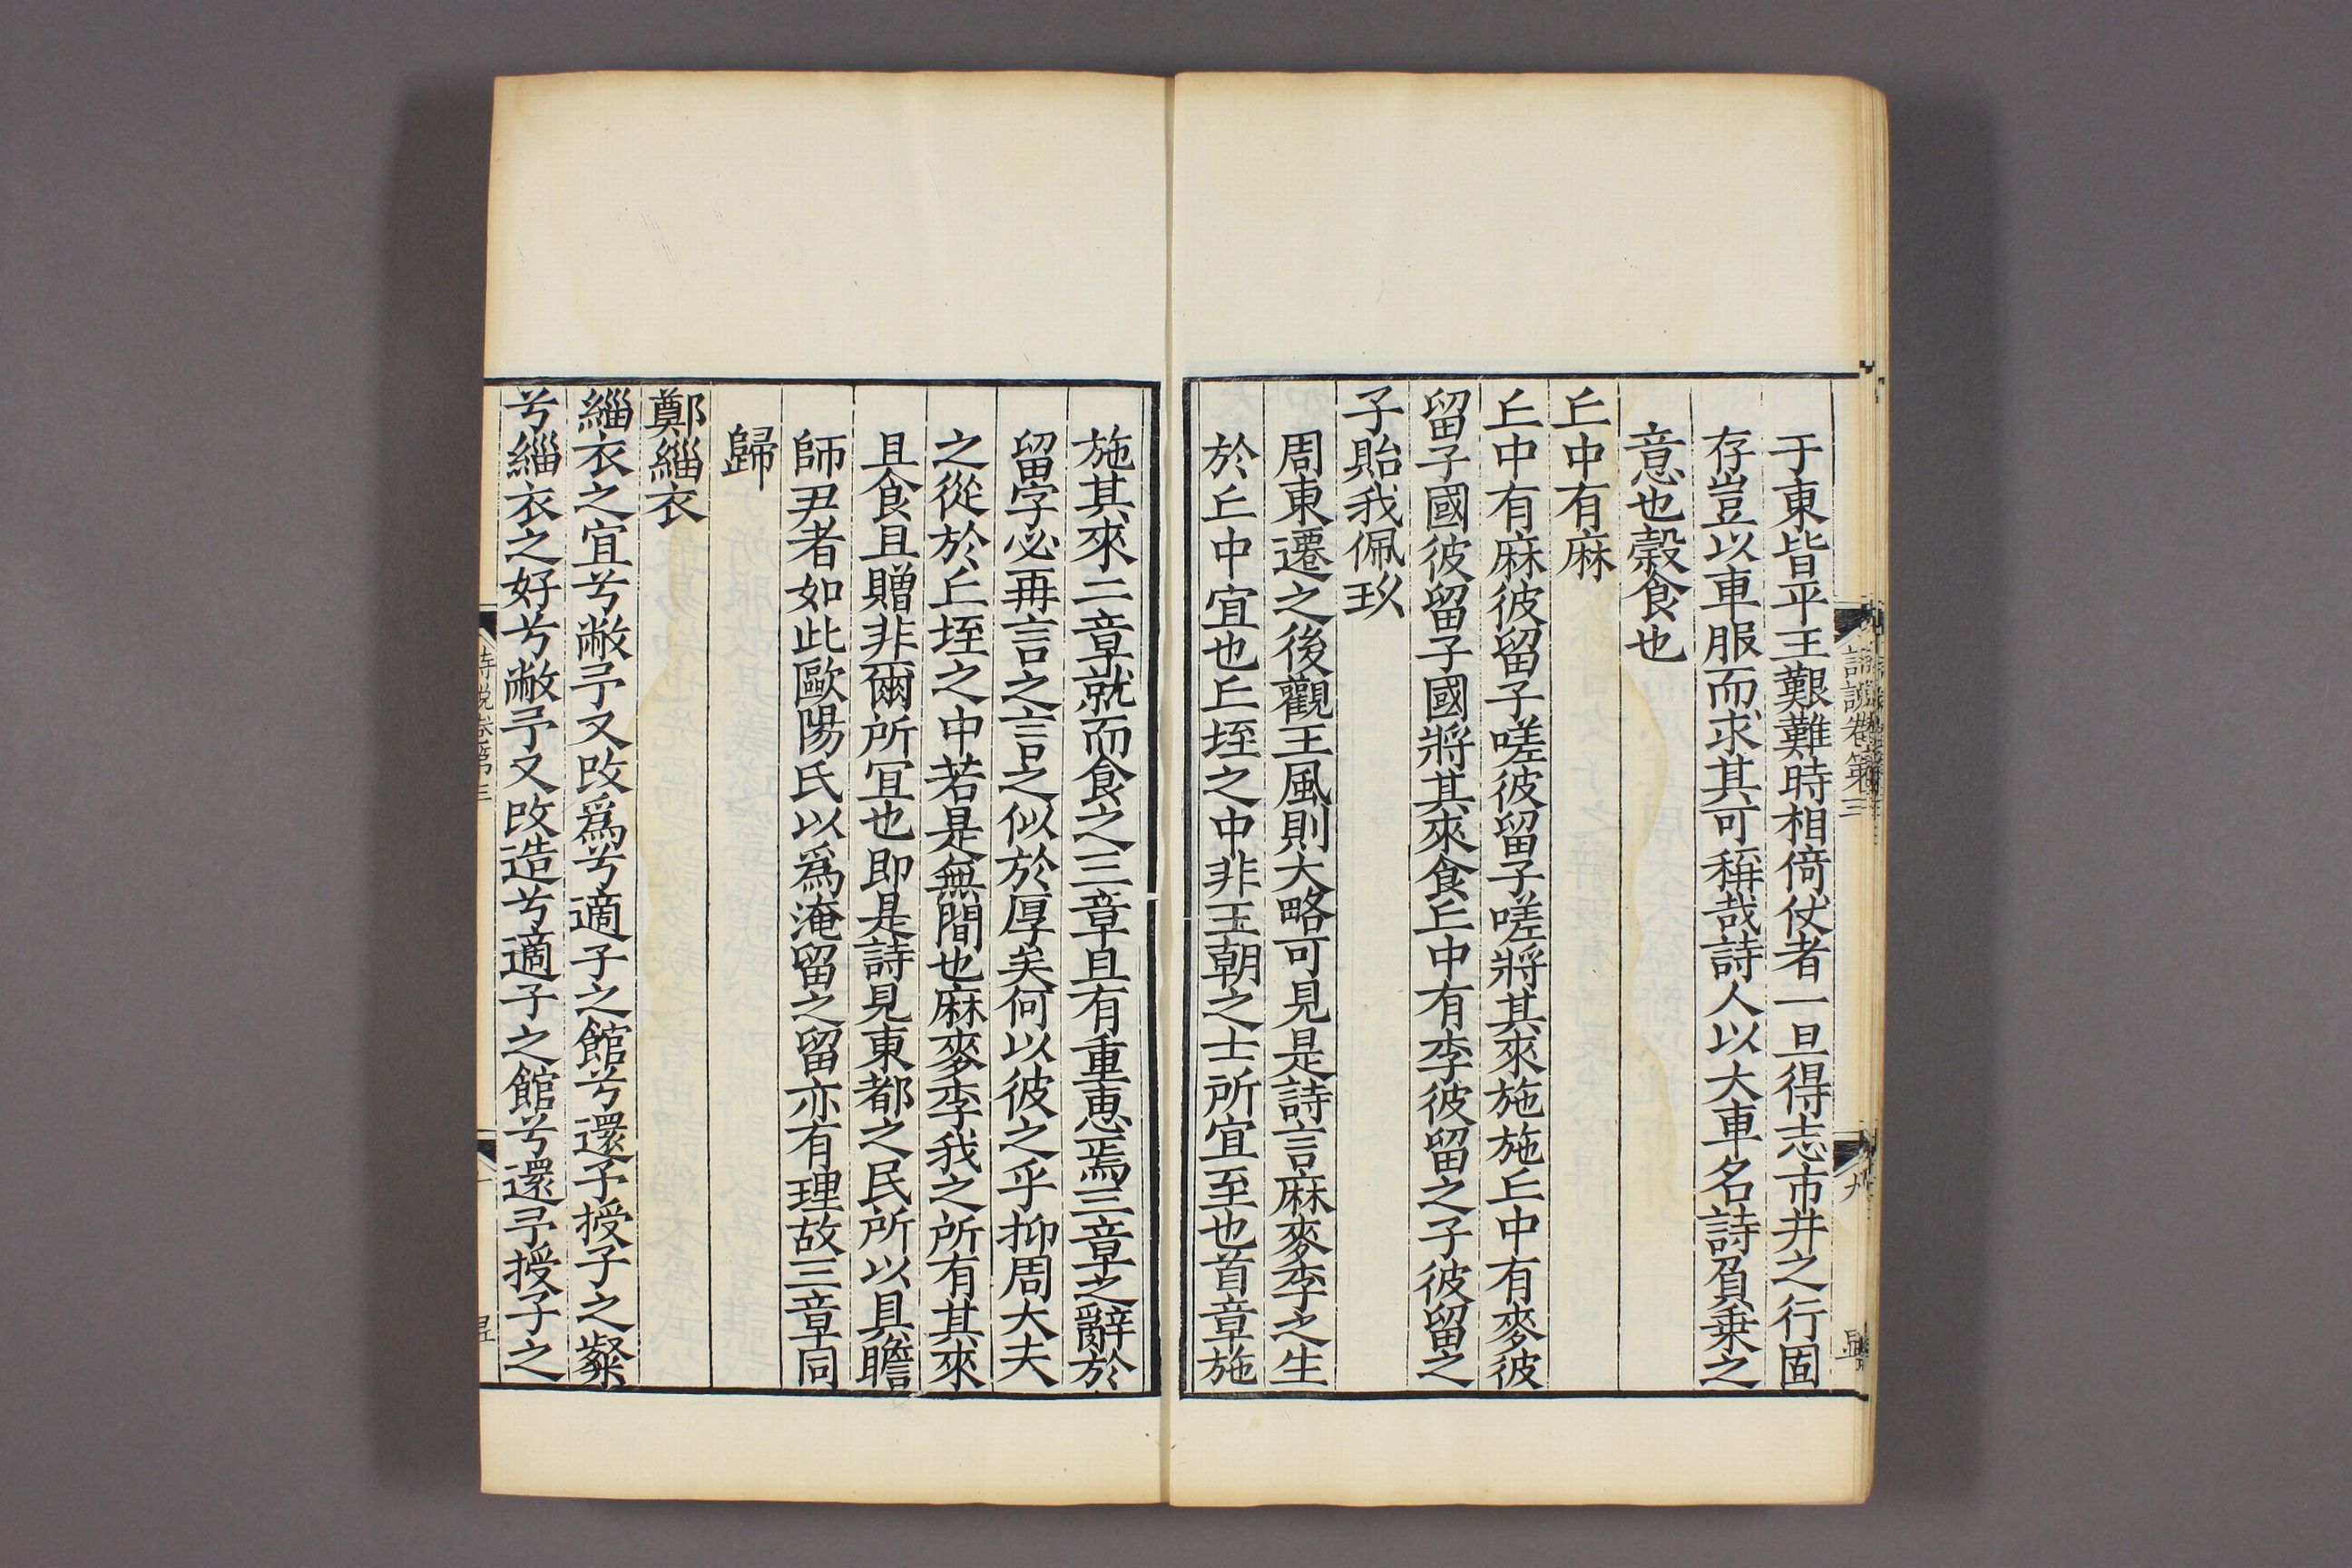 于東皆平王艱難時相倚仗者一旦得志市井之行固
存豈以車服而求其可稱哉詩人以大車名詩負乗之
意也糓食也
丘中有麻
丘中有麻彼留子嗟彼留子嗟將其來施施丘中有麥彼
留子國彼留子國將其來食丘中有李彼留之子彼留之
子貽我佩玖
周東遷之後觀王風則大略可見是詩言麻麥李之生
於丘中宜也丘垤之中非王朝之士所宜至也首章施
施其來二章就而食之三章且有重恵焉三章之辭於
留字必再言之言之似於厚矣何以彼之乎抑周大夫
之從於丘垤之中若是無間也麻麥李我之所有其來
且食且贈非爾所冝也即是詩見東都之民所以具瞻
師尹者如此歐陽氏以爲淹留之留亦有理故三章同
歸
鄭緇衣
緇衣之宜兮敝予又改爲兮適子之館兮還予授子之粲
兮緇衣之好兮敝予又改造兮適子之館兮還予授子之
詩説卷第三